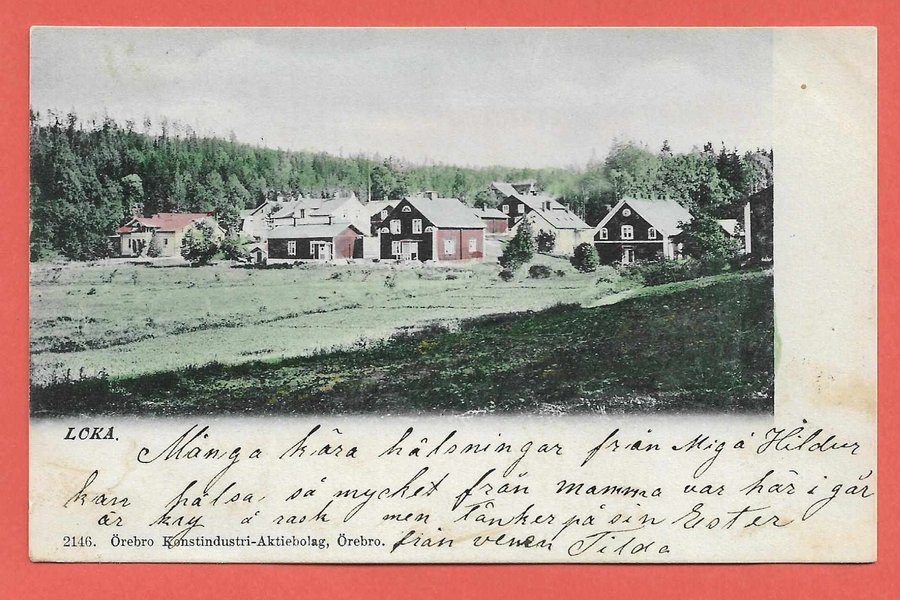 LOKA.
Många kära hälsningar från Mig å Hildur
kan hälsa, så mycket från mamma var här i går
är kry å rask men tänker på sin Ester
2146. Örebro Konstindustri-Aktiebolag, Örebro.
från vännen Tilda